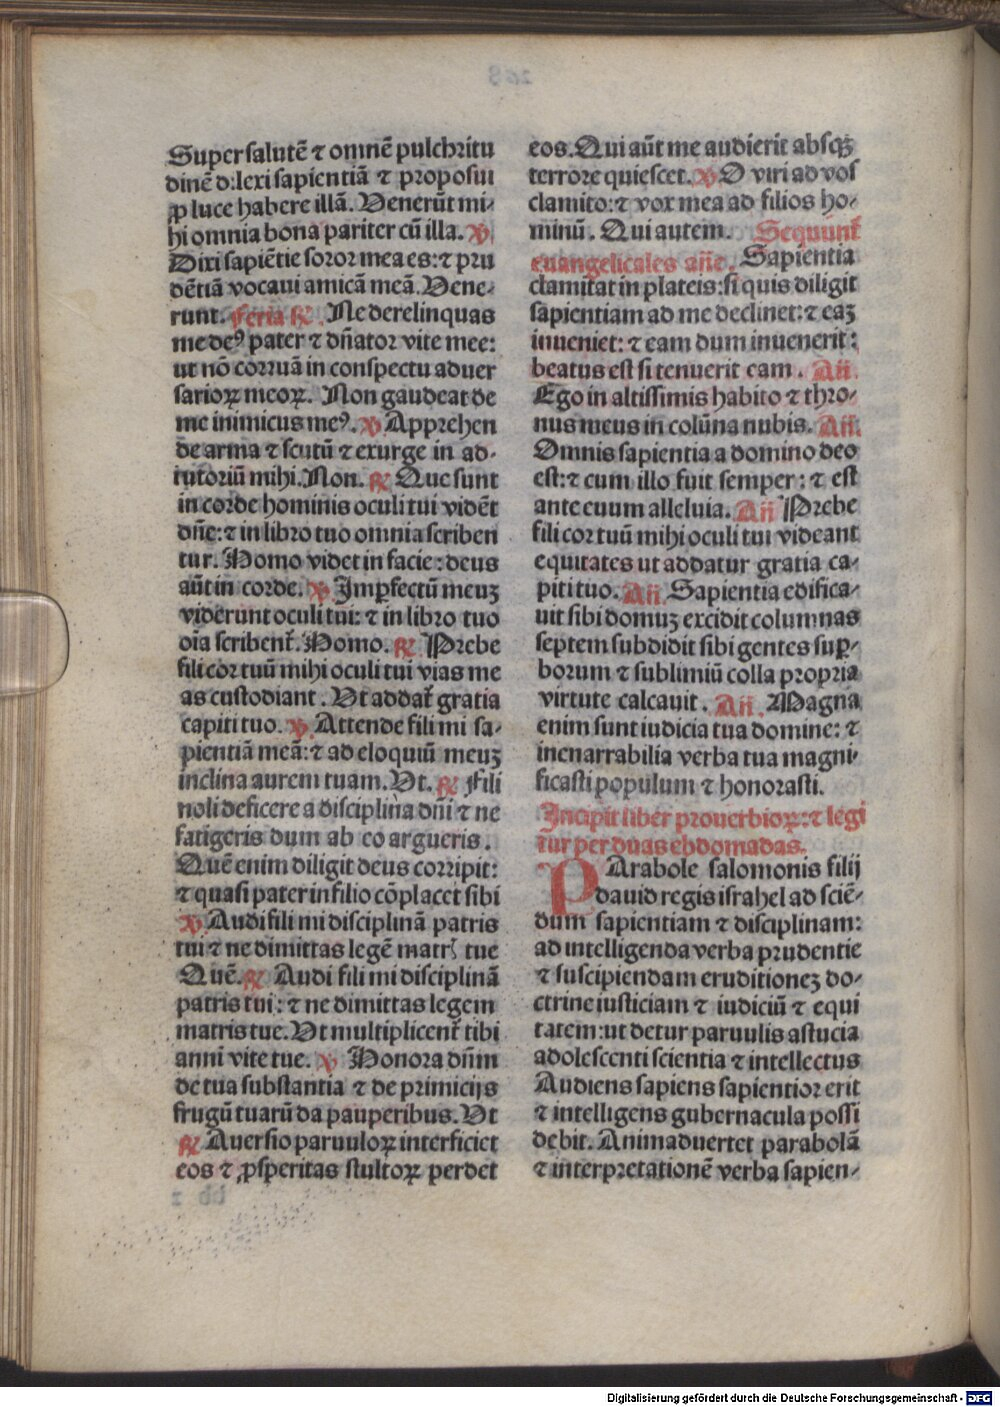 Super salutē ⁊ omnē pulchritu
dinē dilexi sapientiā ⁊ proposui
ꝓ luce habere illā. Venerūt mi-
hi omnia bona pariter cū illa. ℣.
Dixi sapiētie soror mea es: ⁊ pru
dētiā vocaui amicā meā. Vene-
runt. Feria ℟. Ne derelinquas
me deꝰ pater ⁊ dn̄ator vite mee:
ut nō corruā in conspectu aduer
sarioꝝ meoꝝ. Non gaudeat de
me inimicus meꝰ. ℣. Apprehen
de arma ⁊ scutū ⁊ exurge in ad-
iutoriū mihi. Non. ℟ Que sunt
in corde hominis oculi tui vidēt
dn̄e: ⁊ in libro tuo omnia scriben
tur. Homo videt in facie: deus
aūt in corde. ℣. Imꝑfectū meuꝫ
viderunt oculi tui: ⁊ in libro tuo
oīa scribent̄. Homo. ℟ Prebe
fili cor tuū mihi oculi tui vias me
as custodiant. Vt addat̄ gratia
capiti tuo. ℣. Attende fili mi sa-
pientiā meā: ⁊ ad eloquiū meuꝫ
inclina aurem tuam. Vt. ℟ Fili
noli deficere a disciplina dn̄i ⁊ ne
fatigeris dum ab eo argueris.
Quē enim diligit deus corripit:
⁊ quasi pater in filio cōplacet sibi
℣. Audi fili mi disciplinā patris
tui ⁊ ne dimittas legē matr̄ tue
Quē. ℟ Audi fili mi disciplinā
patris tui: ⁊ ne dimittas legem
matris tue. Vt multiplicent̄ tibi
anni vite tue. ℣. Honora dn̄m
de tua substantia ⁊ de primicijs
frugū tuarū da pauperibus. Vt
℟ Auersio paruuloꝝ interficiet
eos ⁊ ꝓsperitas stultoꝝ perdet
eos. Qui aūt me audierit absqꝫ
terrore quiescet. ℣. O viri ad vos
clamito: ⁊ vox mea ad filios ho-
minū. Qui autem. Sequunt̄
euangelicales an̄e. Sapientia
clamitat in plateis: si quis diligit
sapientiam ad me declinet: ⁊ eaꝫ
inueniet: ⁊ eam dum inuenerit:
beatus est si tenuerit eam. Añ.
Ego in altissimis habito ⁊ thro-
nus meus in colūna nubis. Añ.
Omnis sapientia a domino deo
est: ⁊ cum illo fuit semper: ⁊ est
ante euum alleluia. Añ Prebe
fili cor tuū mihi oculi tui videant
equitates ut addatur gratia ca-
piti tuo. Añ. Sapientia edifica-
uit sibi domuꝫ excidit columnas
septem subdidit sibi gentes suꝑ-
borum ⁊ sublimiū colla propria
virtute calcauit. Añ. Magna
enim sunt iudicia tua domine: ⁊
inenarrabilia verba tua magni-
ficasti populum ⁊ honorasti.
Incipit liber prouerbioꝝ: ⁊ legi
tur per duas ebdomadas.
PArabole salomonis filij
dauid regis israhel ad sciē-
dum sapientiam ⁊ disciplinam:
ad intelligenda verba prudentie
⁊ suscipiendam eruditioneꝫ do-
ctrine iusticiam ⁊ iudiciū ⁊ equi
tatem: ut detur paruulis astucia
adolescenti scientia ⁊ intellectus
Audiens sapiens sapientior erit
⁊ intelligens gubernacula possi
debit. Animaduertet parabolā
⁊ interpretationē verba sapien-
Digitalisierung gefördert durch die Deutsche Forschungsgemeinschaft - DFG